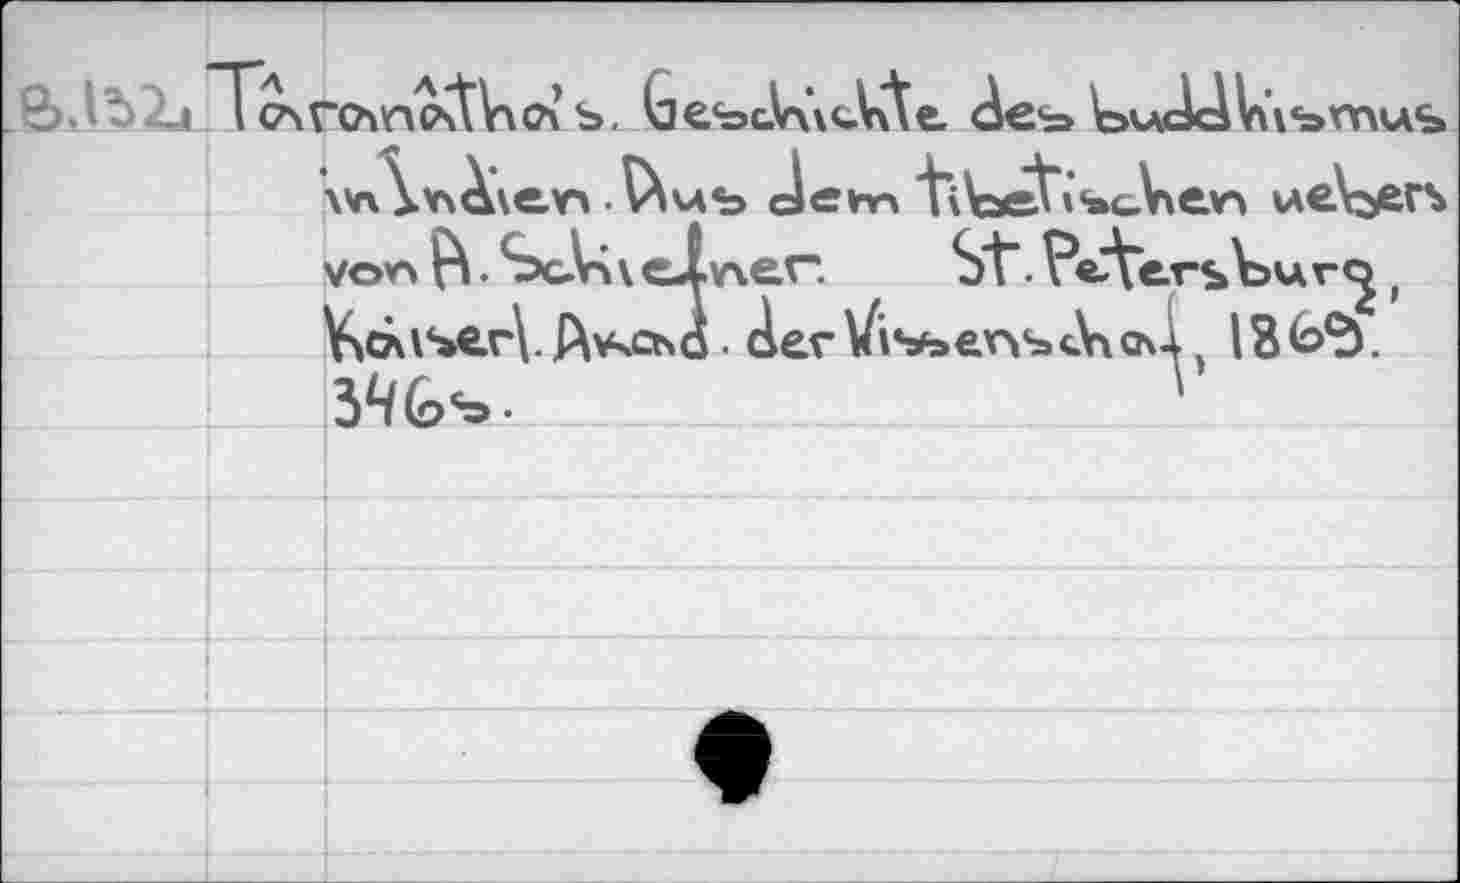 B.132. Târanâtha's. Geschichte des buddhismus
in Indien. Aus dem tibetischen uebers
von A. Schiefner. St. Petersburg,
Kaiserl. Akad. der Wissenschaf, 1869.
346s.